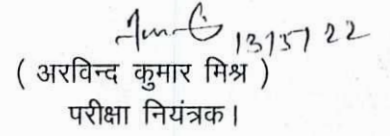 13/5/22
( अरविन्द कुमार मिश्र )
परीक्षा नियंत्रक।